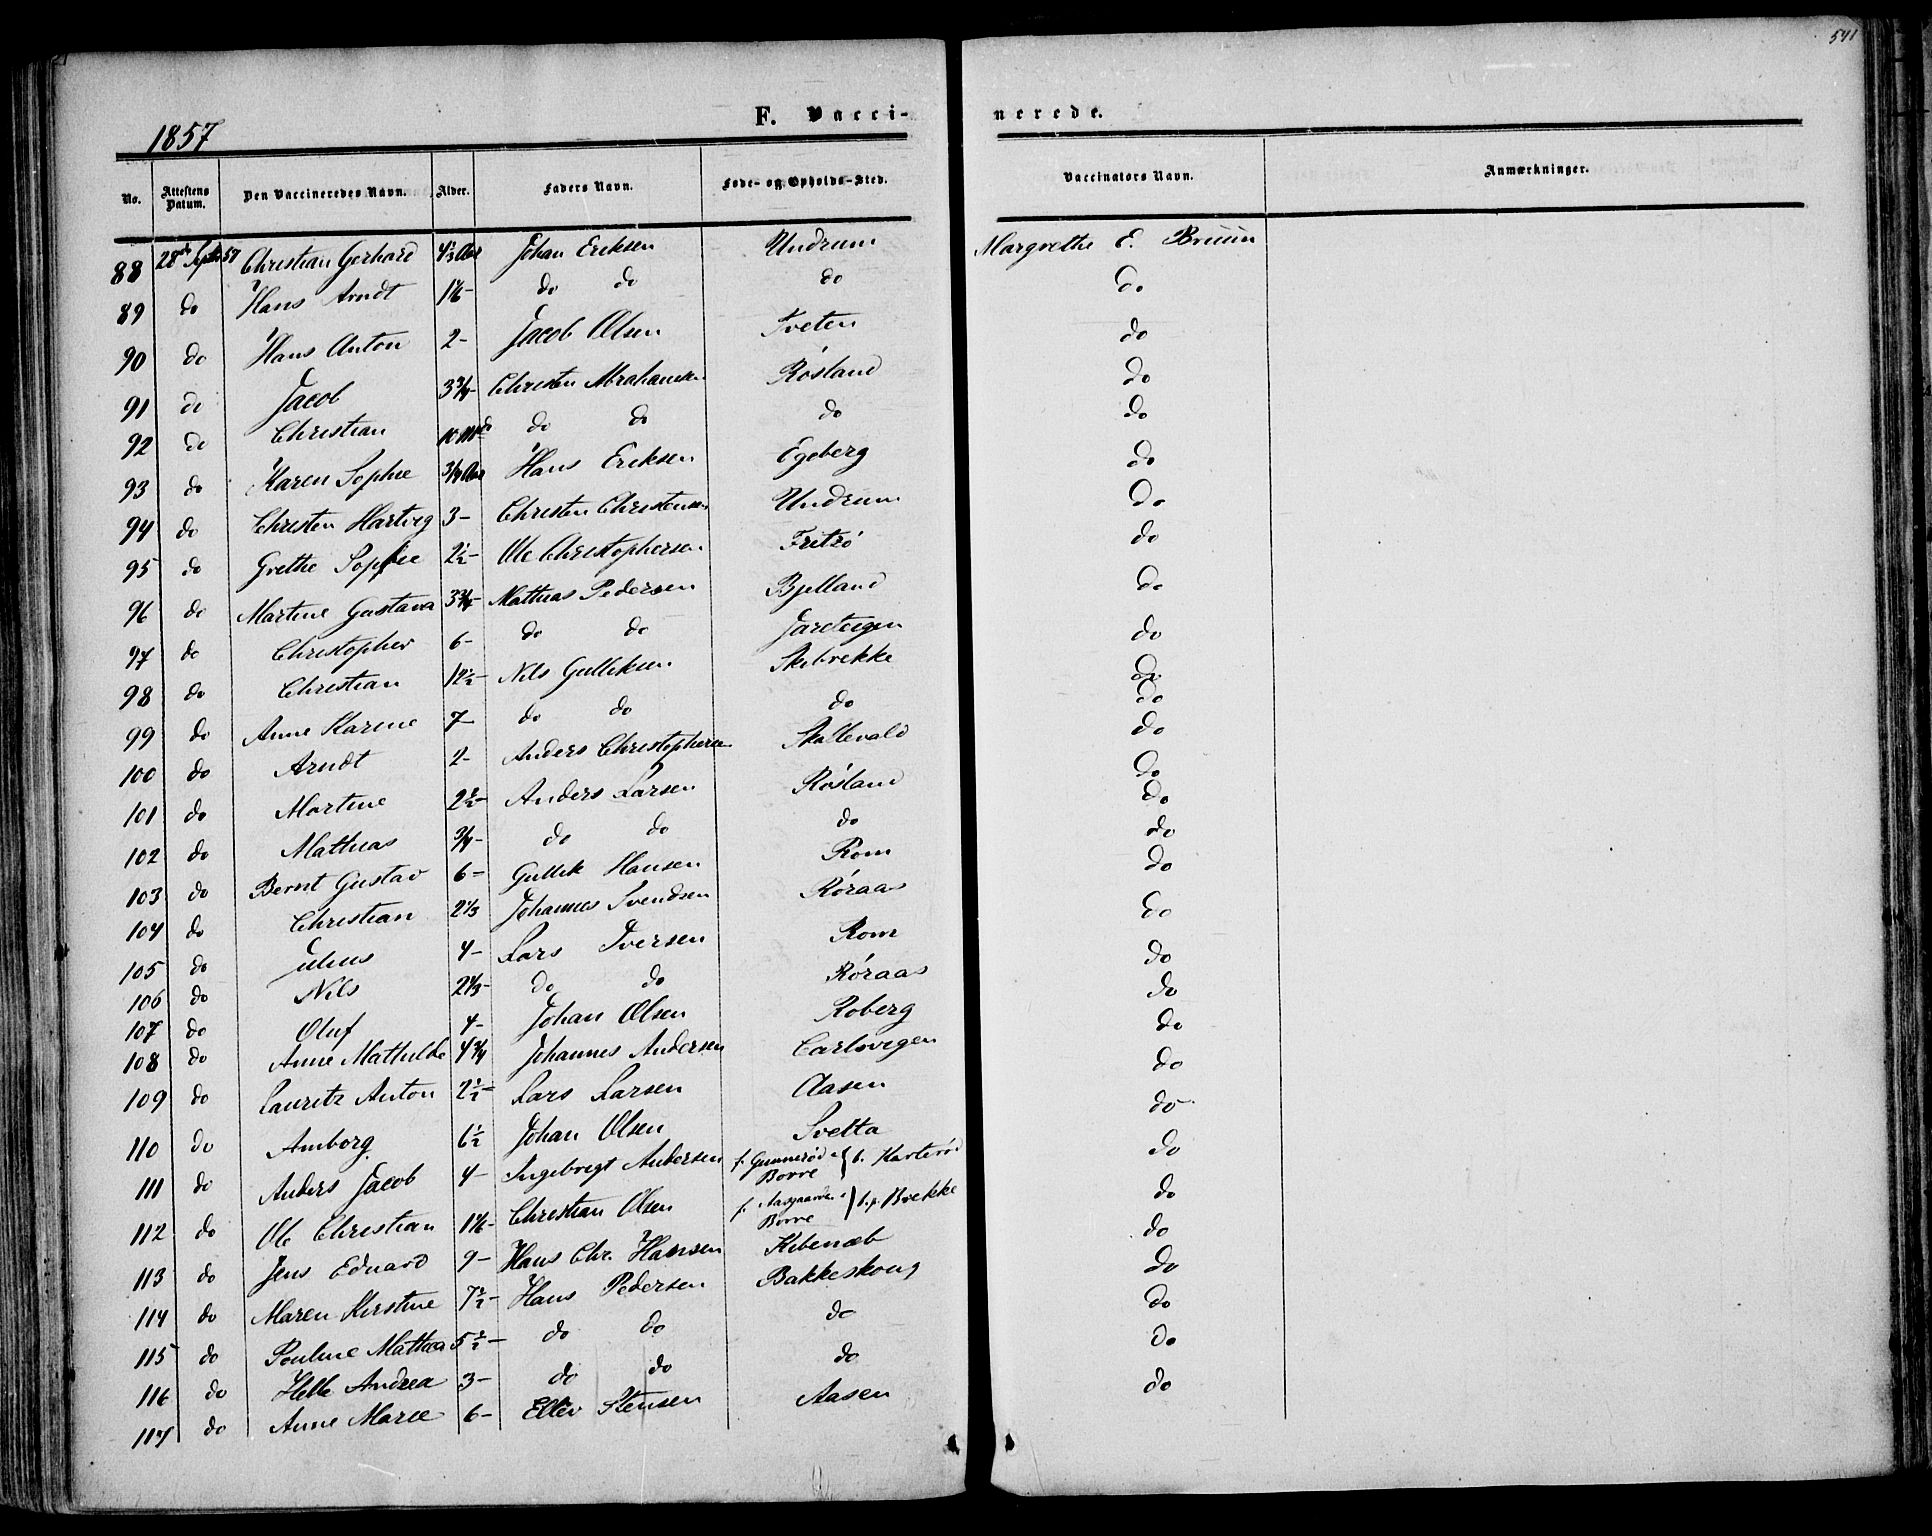 541
1857
F. Vacci- nerede.
No. Attestens Datum. Den Vaccineredes Navn. Alder. Faders Navn. Føde- og Opholds-Sted. Vaccinators Navn. Anmærkninger.
88 28de Septbr 57 Christian Gerhard 4½ Aar Johan Eriksen Undrum Margrethe E. Bruun
89 do Hans Arndt do do do do
90 do Hans Anton 2- Jacob Olsen Tveten do
91 do Jacob 3¾- Christen Abrahamsen Røsland do
92 do Christian 10 do do do do
93 do Karen Sophie ¾ Aar Hans Eriksen Egeberg do
94 do Christen Hartvig 3- Christen Christensen Undrum do
95 do Grethe Sophie 2½- Ole Christophersen Fritzø do
96 do Martine Gustava 3¾- Mathias Pedersen Bjelland do
97 do Christopher 6- do do Jareteigen do
98 do Christian 12½- Nils Gulliksen Skibrekke do
99 do Anne Karine 7- do do do do
100 do Arndt 2- Anders Christophersen Skallevald do
101 do Martine 2½- Anders Larsen Røsland do
102 do Mathias ¾- do do do do
103 do Bernt Gustav 6- Gullik Hansen Rom do
104 do Christian 2⅓ Johannes Svendsen Røraas do
105 do Julius 4- Lars Iversen Rom do
106 do Nils 2⅓- do do Røraas do
107 do Oluf 4- Johan Olsen Roberg do
108 do Anne Mathilde 4¾ Johannes Andersen Carlsvegen do
109 do Lauritz Anton 2½- Lars Larsen Aasen do
110 do Amborg 6½ Johan Olsen Svetta do
111 do Anders Jacob 4- Ingebregt Andersen f. Gunnerød Borre } b. Karterød do
112 do Ole Christian Christian Olsen f. Aasgaarden Borre } b. p. Brekke do
113 do Jens Eduard 9- Hans Chr. Hansen Kibenæb do
114 do Maren Kirstine 7½- Hans Pedersen Bakkeskoug do
115 do Pouline Mathea 5½- do do do do
116 do Helle Andrea 3- do do do do
117 do Anne Marie 6- Ellev Stensen Aasen do